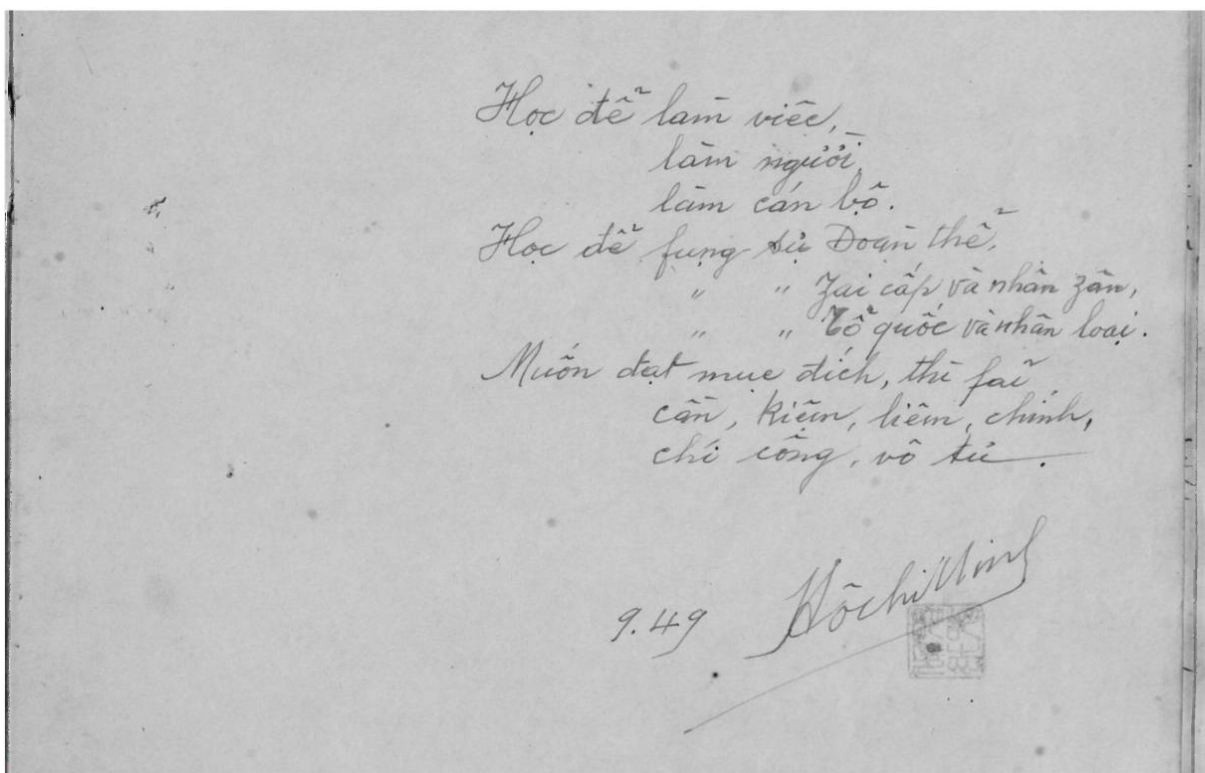 Học để làm việc,
làm người,
làm cán bộ.
Học để fụng sự Đoàn thể,
" " Jai cấp và nhân zân,
" " Tổ quốc và nhân loại.
Muốn đạt mục đích, thì fải
cần, kiệm, liêm, chính,
chí công, vô tư.
9.49 Hồ Chí Minh